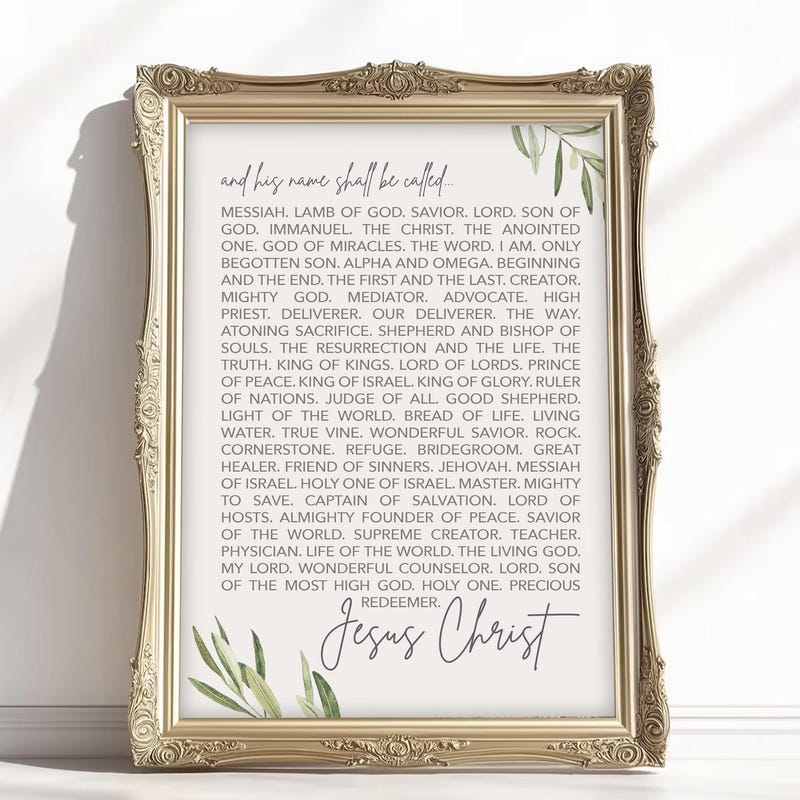 and his name shall be called...
MESSIAH. LAMB OF GOD. SAVIOR. LORD. SON OF
GOD. IMMANUEL. THE CHRIST. THE ANOINTED
ONE. GOD OF MIRACLES. THE WORD. I AM. ONLY
BEGOTTEN SON. ALPHA AND OMEGA. BEGINNING
AND THE END. THE FIRST AND THE LAST. CREATOR.
MIGHTY GOD. MEDIATOR. ADVOCATE. HIGH
PRIEST. DELIVERER. OUR DELIVERER. THE WAY.
ATONING SACRIFICE. SHEPHERD AND BISHOP OF
SOULS. THE RESURRECTION AND THE LIFE. THE
TRUTH. KING OF KINGS. LORD OF LORDS. PRINCE
OF PEACE. KING OF ISRAEL. KING OF GLORY. RULER
OF NATIONS. JUDGE OF ALL. GOOD SHEPHERD.
LIGHT OF THE WORLD. BREAD OF LIFE. LIVING
WATER. TRUE VINE. WONDERFUL SAVIOR. ROCK.
CORNERSTONE. REFUGE. BRIDEGROOM. GREAT
HEALER. FRIEND OF SINNERS. JEHOVAH. MESSIAH
OF ISRAEL. HOLY ONE OF ISRAEL. MASTER. MIGHTY
TO SAVE. CAPTAIN OF SALVATION. LORD OF
HOSTS. ALMIGHTY FOUNDER OF PEACE. SAVIOR
OF THE WORLD. SUPREME CREATOR. TEACHER.
PHYSICIAN. LIFE OF THE WORLD. THE LIVING GOD.
MY LORD. WONDERFUL COUNSELOR. LORD. SON
OF THE MOST HIGH GOD. HOLY ONE. PRECIOUS
REDEEMER.
Jesus Christ